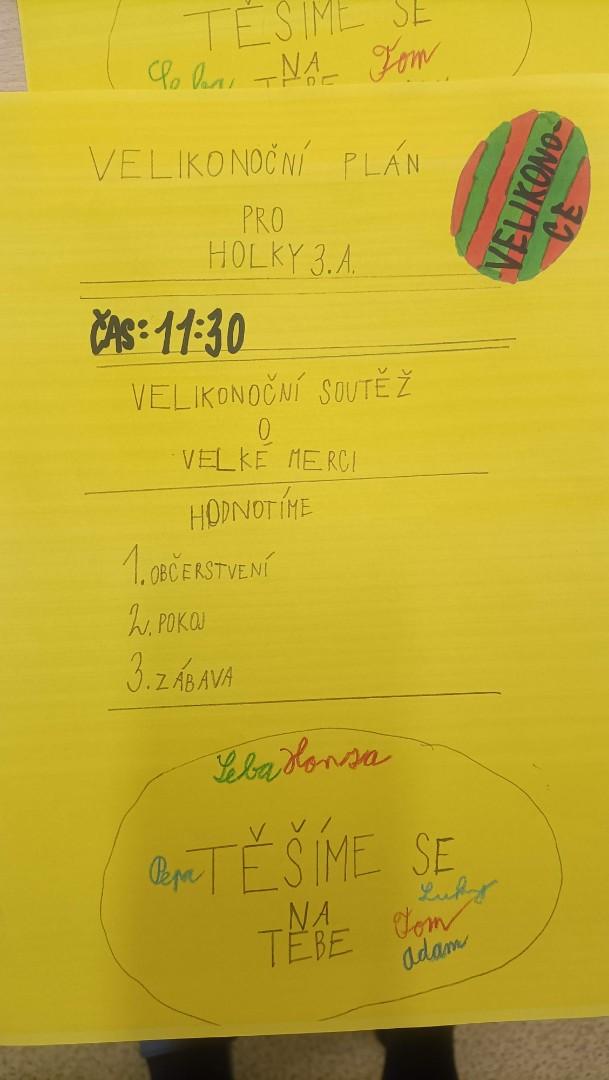 TĚŠÍME SE
NA
Seba Tom
TEBE
VELIKONOČNÍ PLÁN
PRO
HOLKY 3.A.
VELIKONO-
CE
ČAS: 11:30
VELIKONOČNÍ SOUTĚŽ
O
VELKÉ MERCI
HODNOTÍME
1. OBČERSTVENÍ
2. POKOJ
3. ZÁBAVA
Seba Honza
Pepa TĚŠÍME SE
Luky
NA
Tom
TEBE
adam